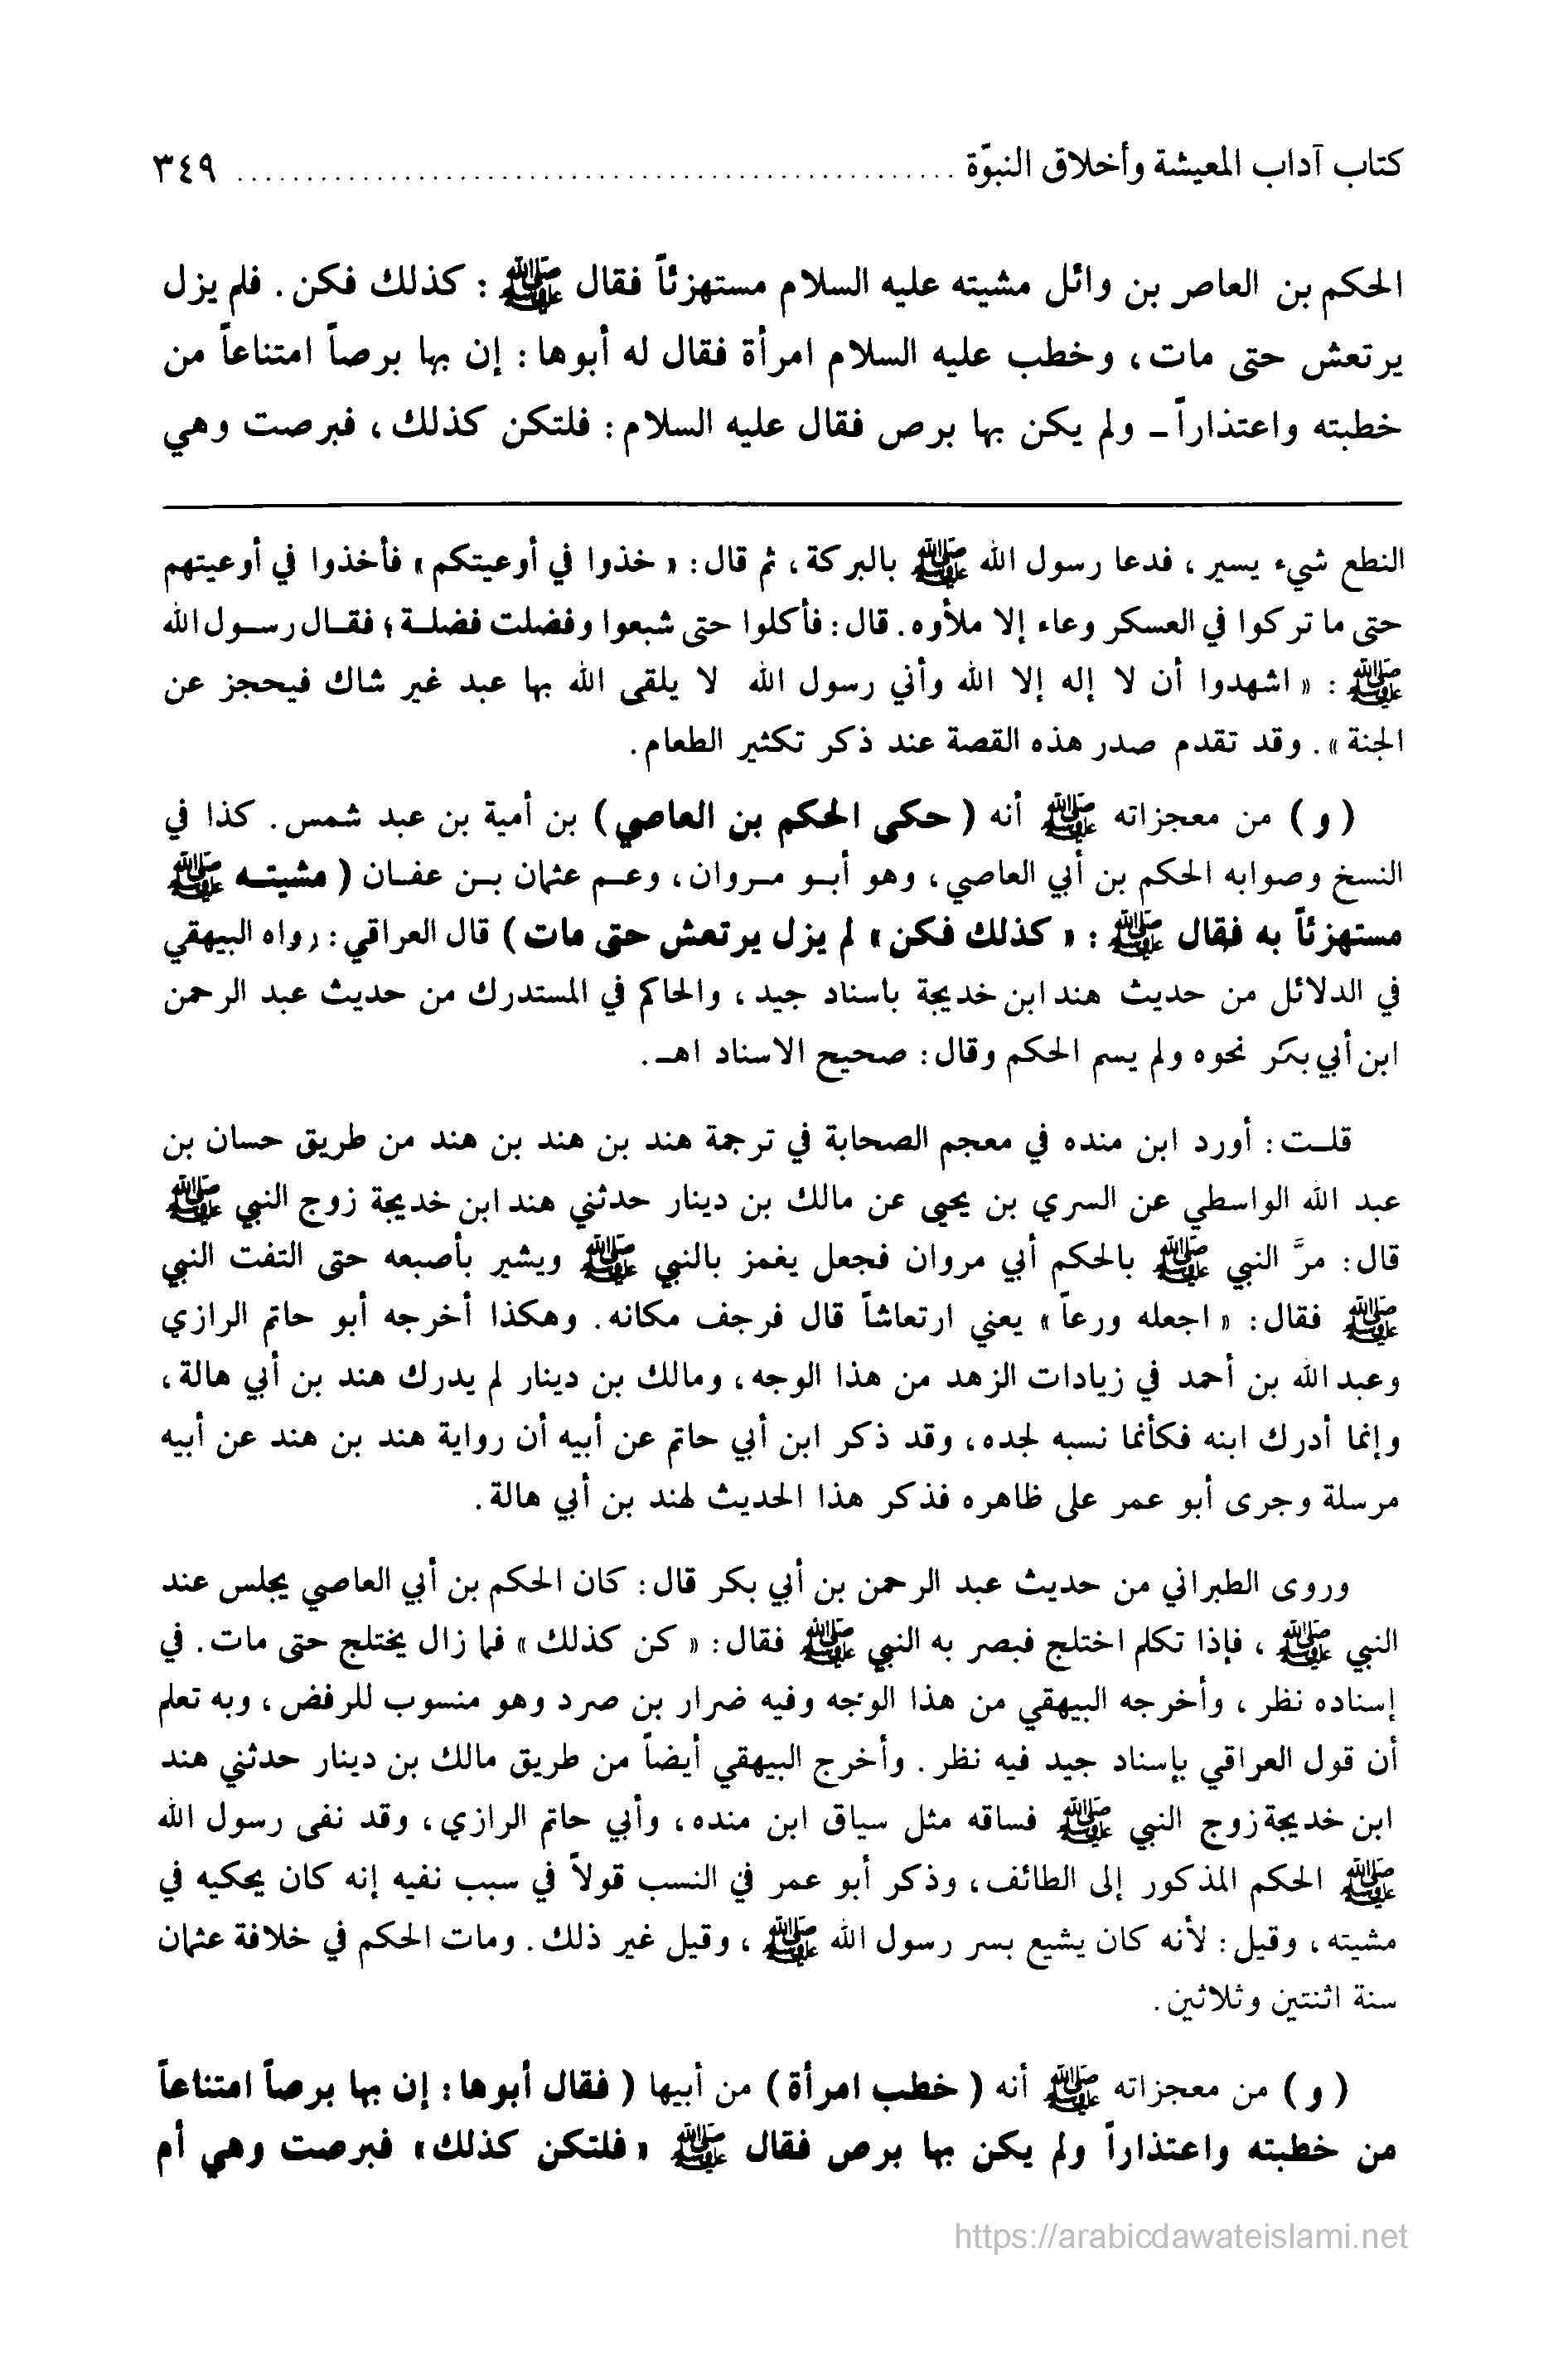 كتاب آداب المعيشة وأخلاق النبوّة ................................................ ٣٤٩
الحكم بن العاص بن وائل مشيته عليه السلام مستهزئاً فقال ﷺ : كذلك فكن. فلم يزل
يرتعش حتى مات، وخطب عليه السلام امرأة فقال له أبوها: إن بها برصاً امتناعاً من
خطبته واعتذاراً ـ ولم يكن بها برص فقال عليه السلام: فلتكن كذلك، فبرصت وهي
النطع شيء يسير، فدعا رسول الله ﷺ بالبركة، ثم قال: « خذوا في أوعيتكم » فأخذوا في أوعيتهم
حتى ما تركوا في العسكر وعاء إلا ملأوه. قال: فأكلوا حتى شبعوا وفضلت فضلـة؛ فقـال رسـول الله
ﷺ : « اشهدوا أن لا إله إلا الله وأني رسول الله لا يلقى الله بها عبد غير شاك فيحجز عن
الجنة ». وقد تقدم صدر هذه القصة عند ذكر تكثير الطعام.
( و ) من معجزاته ﷺ أنه ( حكى الحكم بن العاصي ) بن أمية بن عبد شمس. كذا في
النسخ وصوابه الحكم بن أبي العاصي، وهو أبـو مـروان، وعـم عثمان بـن عفـان ( مشيتـه ﷺ
مستهزئاً به فقال ﷺ : « كذلك فكن » لم يزل يرتعش حتى مات ) قال العراقي: رواه البيهقي
في الدلائل من حديث هند ابن خديجة باسناد جيد، والحاكم في المستدرك من حديث عبد الرحمن
ابن أبي بكر نحوه ولم يسم الحكم وقال: صحيح الاسناد اهـ.
قلـت: أورد ابن منده في معجم الصحابة في ترجمة هند بن هند بن هند من طريق حسان بن
عبد الله الواسطي عن السري بن يحيى عن مالك بن دينار حدثني هند ابن خديجة زوج النبي ﷺ
قال: مرَّ النبي ﷺ بالحكم أبي مروان فجعل يغمز بالنبي ﷺ ويشير بأصبعه حتى التفت النبي
ﷺ فقال: « اجعله ورعاً » يعني ارتعاشاً قال فرجف مكانه. وهكذا أخرجه أبو حاتم الرازي
وعبد الله بن أحمد في زيادات الزهد من هذا الوجه، ومالك بن دينار لم يدرك هند بن أبي هالة،
وإنما أدرك ابنه فكأنما نسبه لجده، وقد ذكر ابن أبي حاتم عن أبيه أن رواية هند بن هند عن أبيه
مرسلة وجرى أبو عمر على ظاهره فذكر هذا الحديث لهند بن أبي هالة.
وروى الطبراني من حديث عبد الرحمن بن أبي بكر قال: كان الحكم بن أبي العاصي يجلس عند
النبي ﷺ ، فإذا تكلم اختلج فبصر به النبي ﷺ فقال: « كن كذلك » فما زال يختلج حتى مات. في
إسناده نظر، وأخرجه البيهقي من هذا الوجه وفيه ضرار بن صرد وهو منسوب للرفض، وبه تعلم
أن قول العراقي بإسناد جيد فيه نظر. وأخرج البيهقي أيضاً من طريق مالك بن دينار حدثني هند
ابن خديجة زوج النبي ﷺ فساقه مثل سياق ابن منده، وأبي حاتم الرازي، وقد نفى رسول الله
ﷺ الحكم المذكور إلى الطائف، وذكر أبو عمر في النسب قولاً في سبب نفيه إنه كان يحكيه في
مشيته، وقيل: لأنه كان يشيع بسر رسول الله ﷺ ، وقيل غير ذلك. ومات الحكم في خلافة عثمان
سنة اثنتين وثلاثين.
( و ) من معجزاته ﷺ أنه ( خطب امرأة ) من أبيها ( فقال أبوها: إن بها برصاً امتناعاً
من خطبته واعتذاراً ولم يكن بها برص فقال ﷺ « فلتكن كذلك » فبرصت وهي أم
https://arabicdawateislami.net